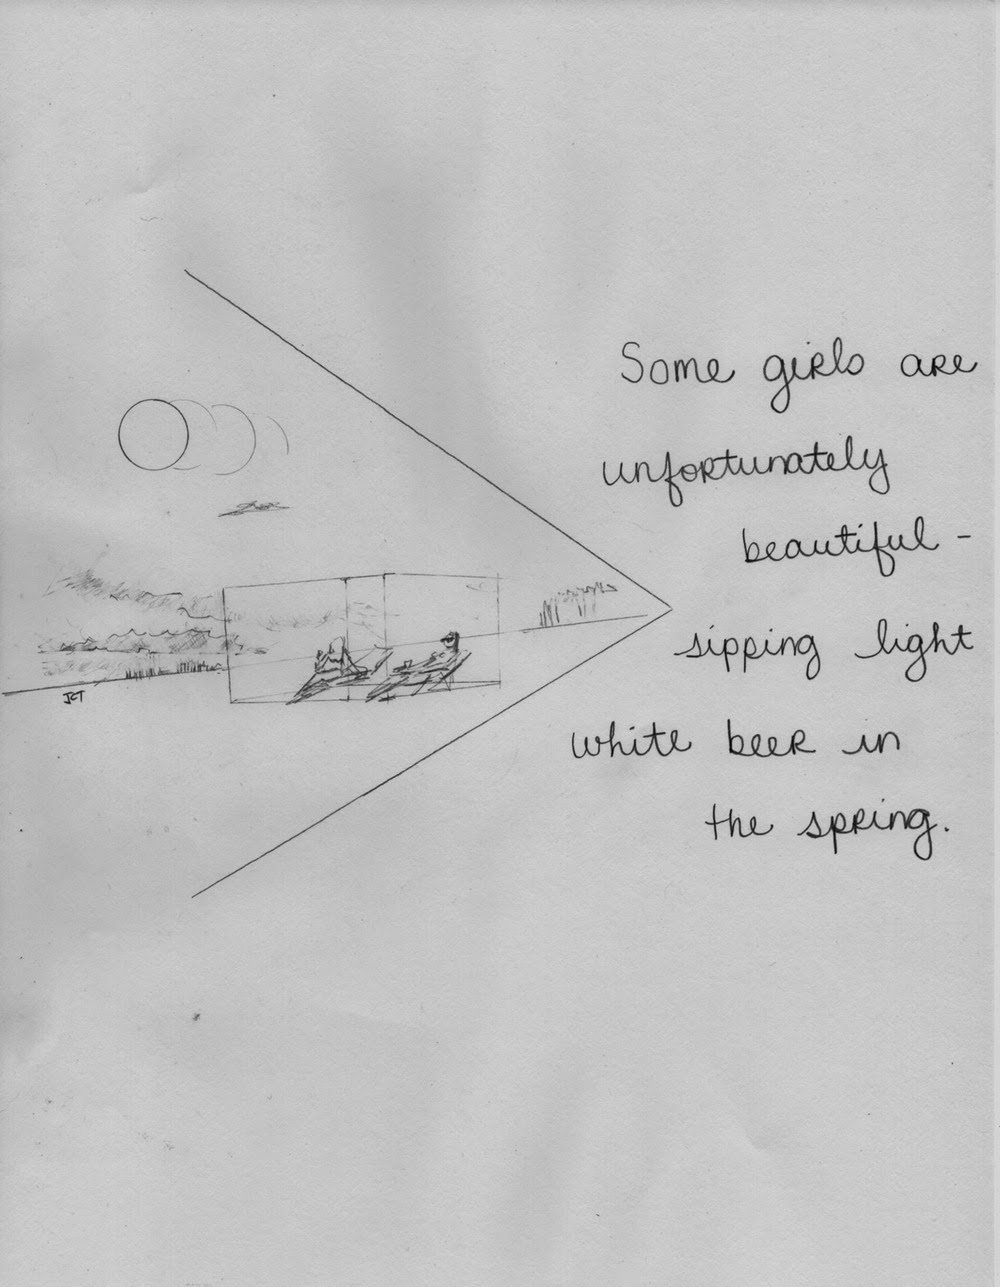 Some girls are
unfortunately
beautiful -
sipping light
white beer in
the spring.
JCT